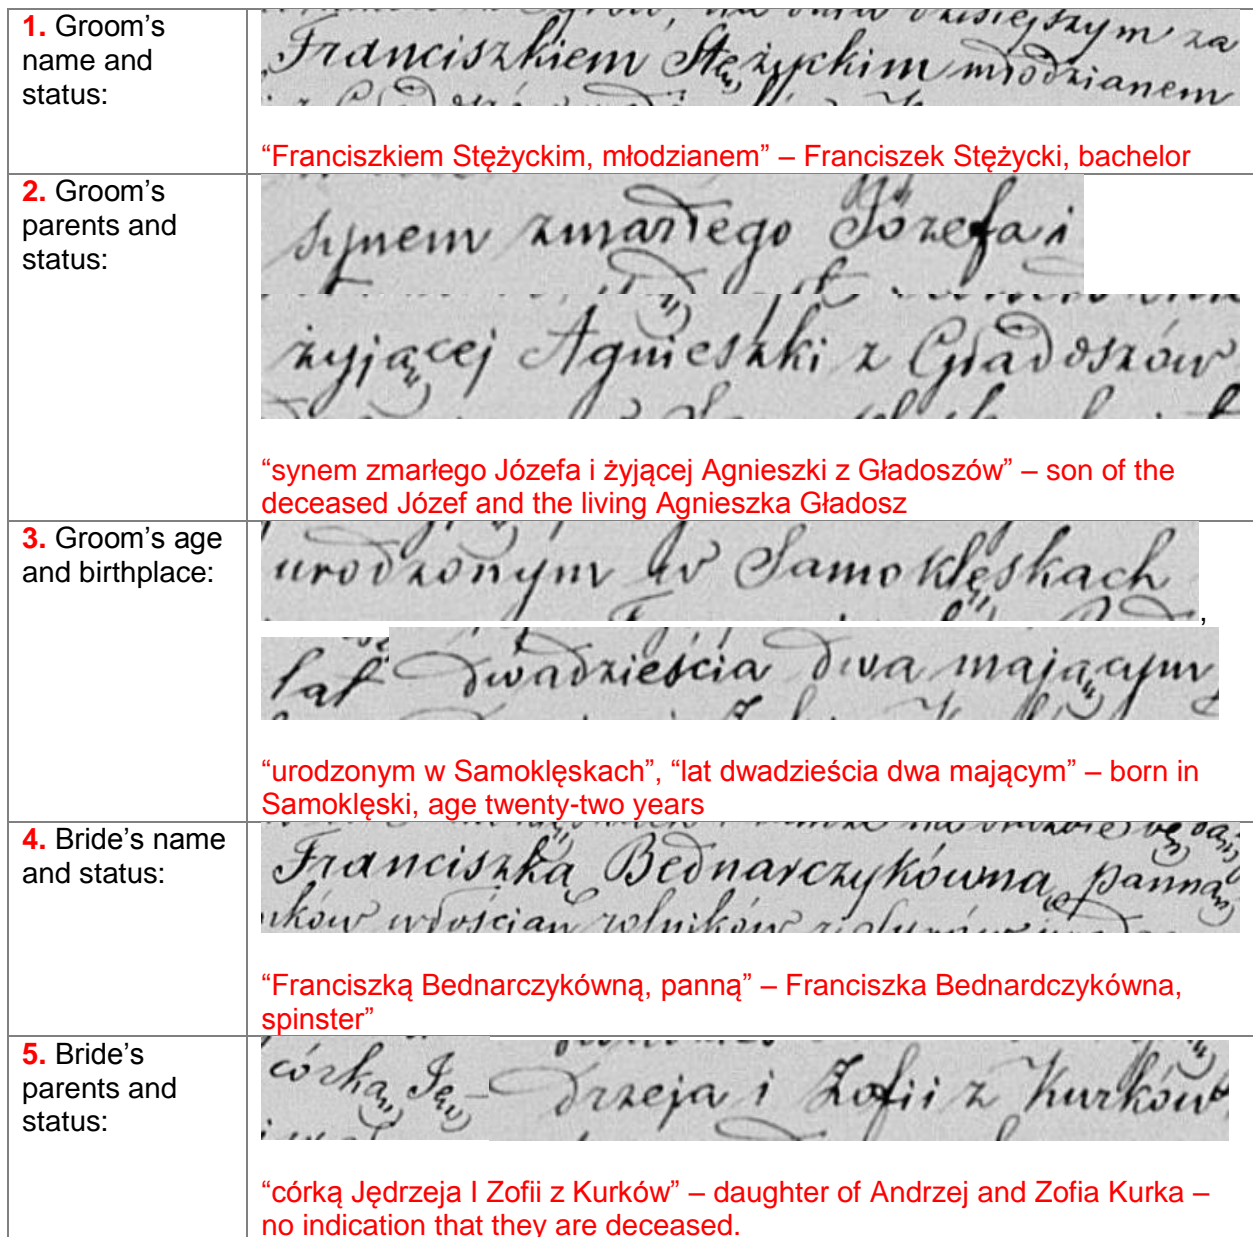 1. Groom's
name and
status:
dzisiejszym za
Franciszkiem Stężyckim młodzianem
"Franciszkiem Stężyckim, młodzianem" – Franciszek Stężycki, bachelor
2. Groom's
parents and
status:
synem zmarłego Józefa i
żyjącej Agnieszki z Gładoszów
"synem zmarłego Józefa i żyjącej Agnieszki z Gładoszów" – son of the
deceased Józef and the living Agnieszka Gładosz
3. Groom's age
and birthplace:
urodzonym w Samoklęskach
,
lat dwadzieścia dwa mającym
"urodzonym w Samoklęskach", "lat dwadzieścia dwa mającym" – born in
Samoklęski, age twenty-two years
4. Bride's name
and status:
Franciszką Bednarczykówną panną
włościan rolników
"Franciszką Bednarczykówną, panną" – Franciszka Bednardczykówna,
spinster"
5. Bride's
parents and
status:
córką Ję- drzeja i Zofii z Kurków
"córką Jędrzeja I Zofii z Kurków" – daughter of Andrzej and Zofia Kurka –
no indication that they are deceased.